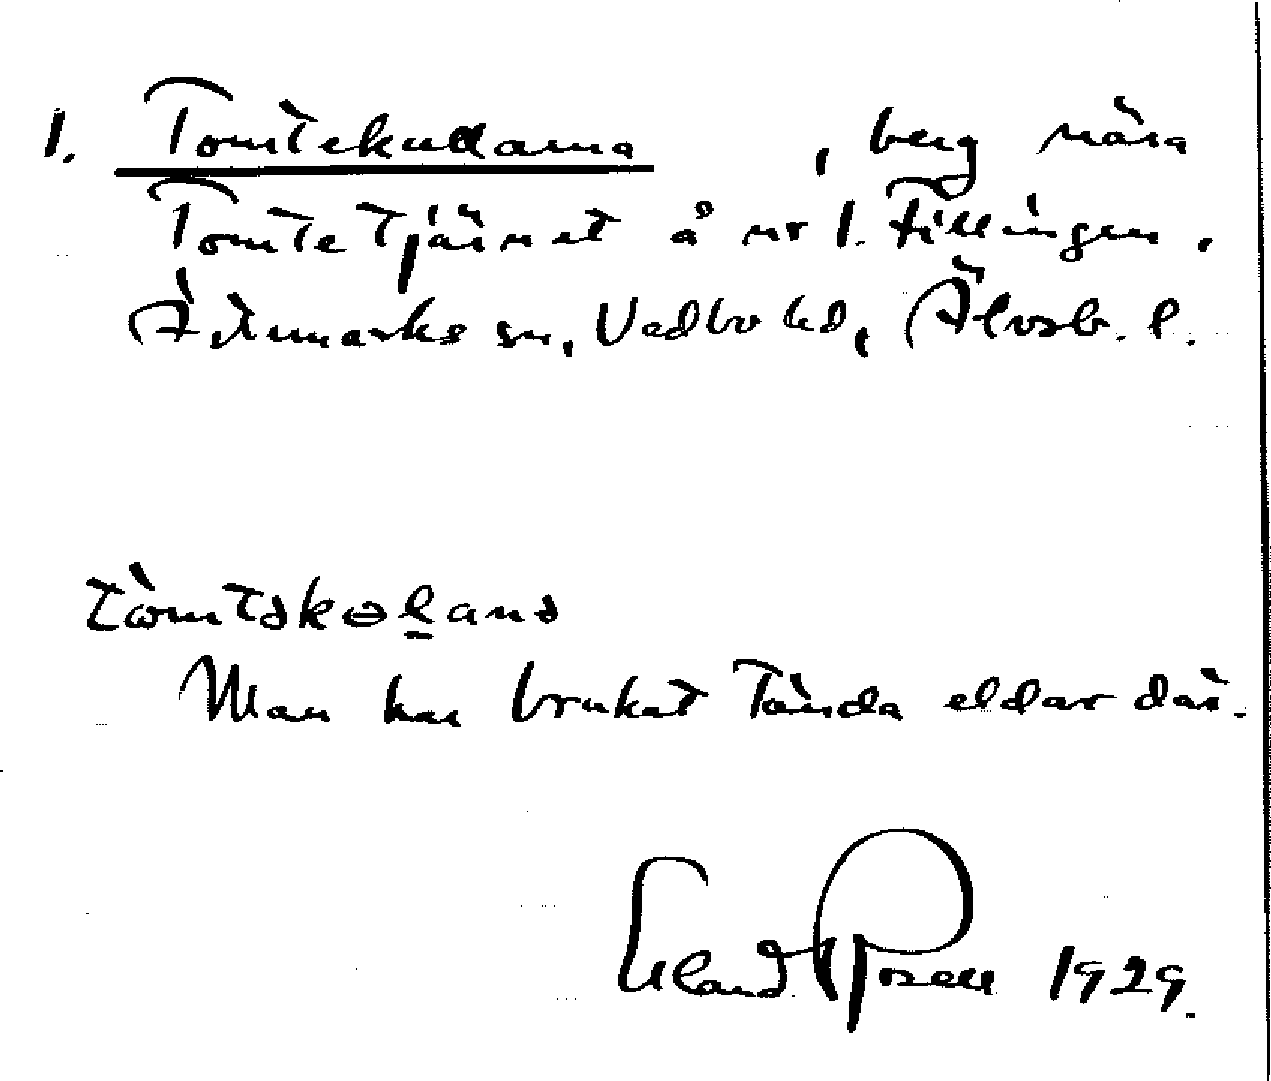 1. Tomtekullarna , berg nära
Tomtetjärnet å nr 1. Fillingen,
Ärtemarks sn, Vedbo hd, Älvsb. l.
tòmtskɵlanə
Man har brukat tända eldar där.
Eland Rosell 1929.